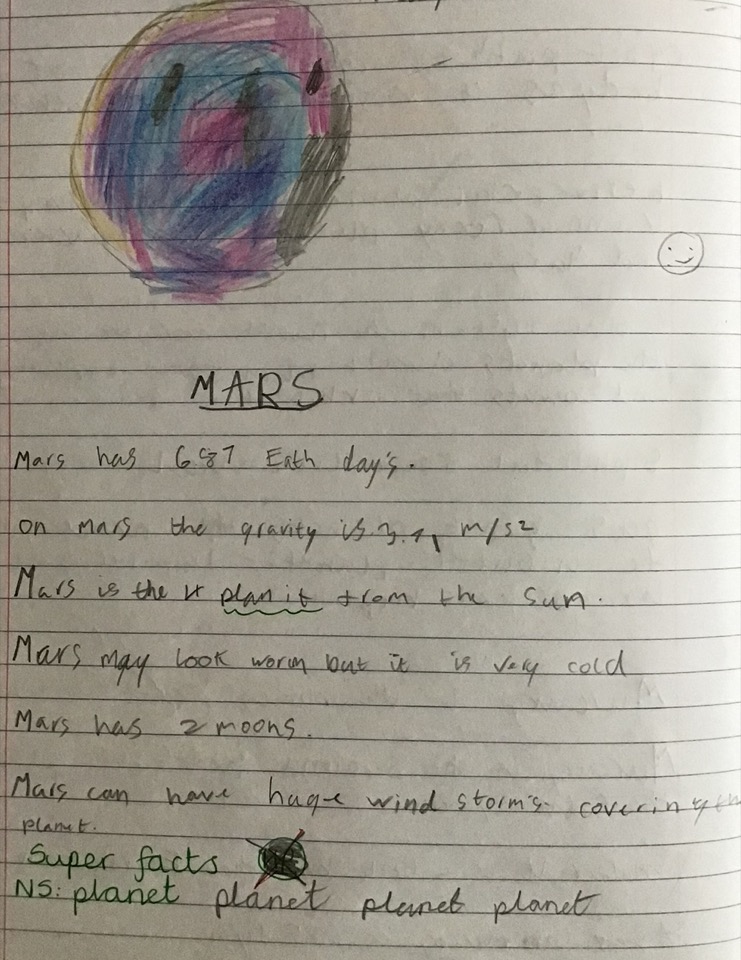 MARS
Mars has 687 Eath day's.
on mars the gravity is 3.71 m/s2
Mars is the 4 planit from the Sun.
Mars may look worm but it is very cold
Mars has 2 moons.
Mars can have huge wind storm's covering
planet.
Super facts
NS: planet planet planet planet